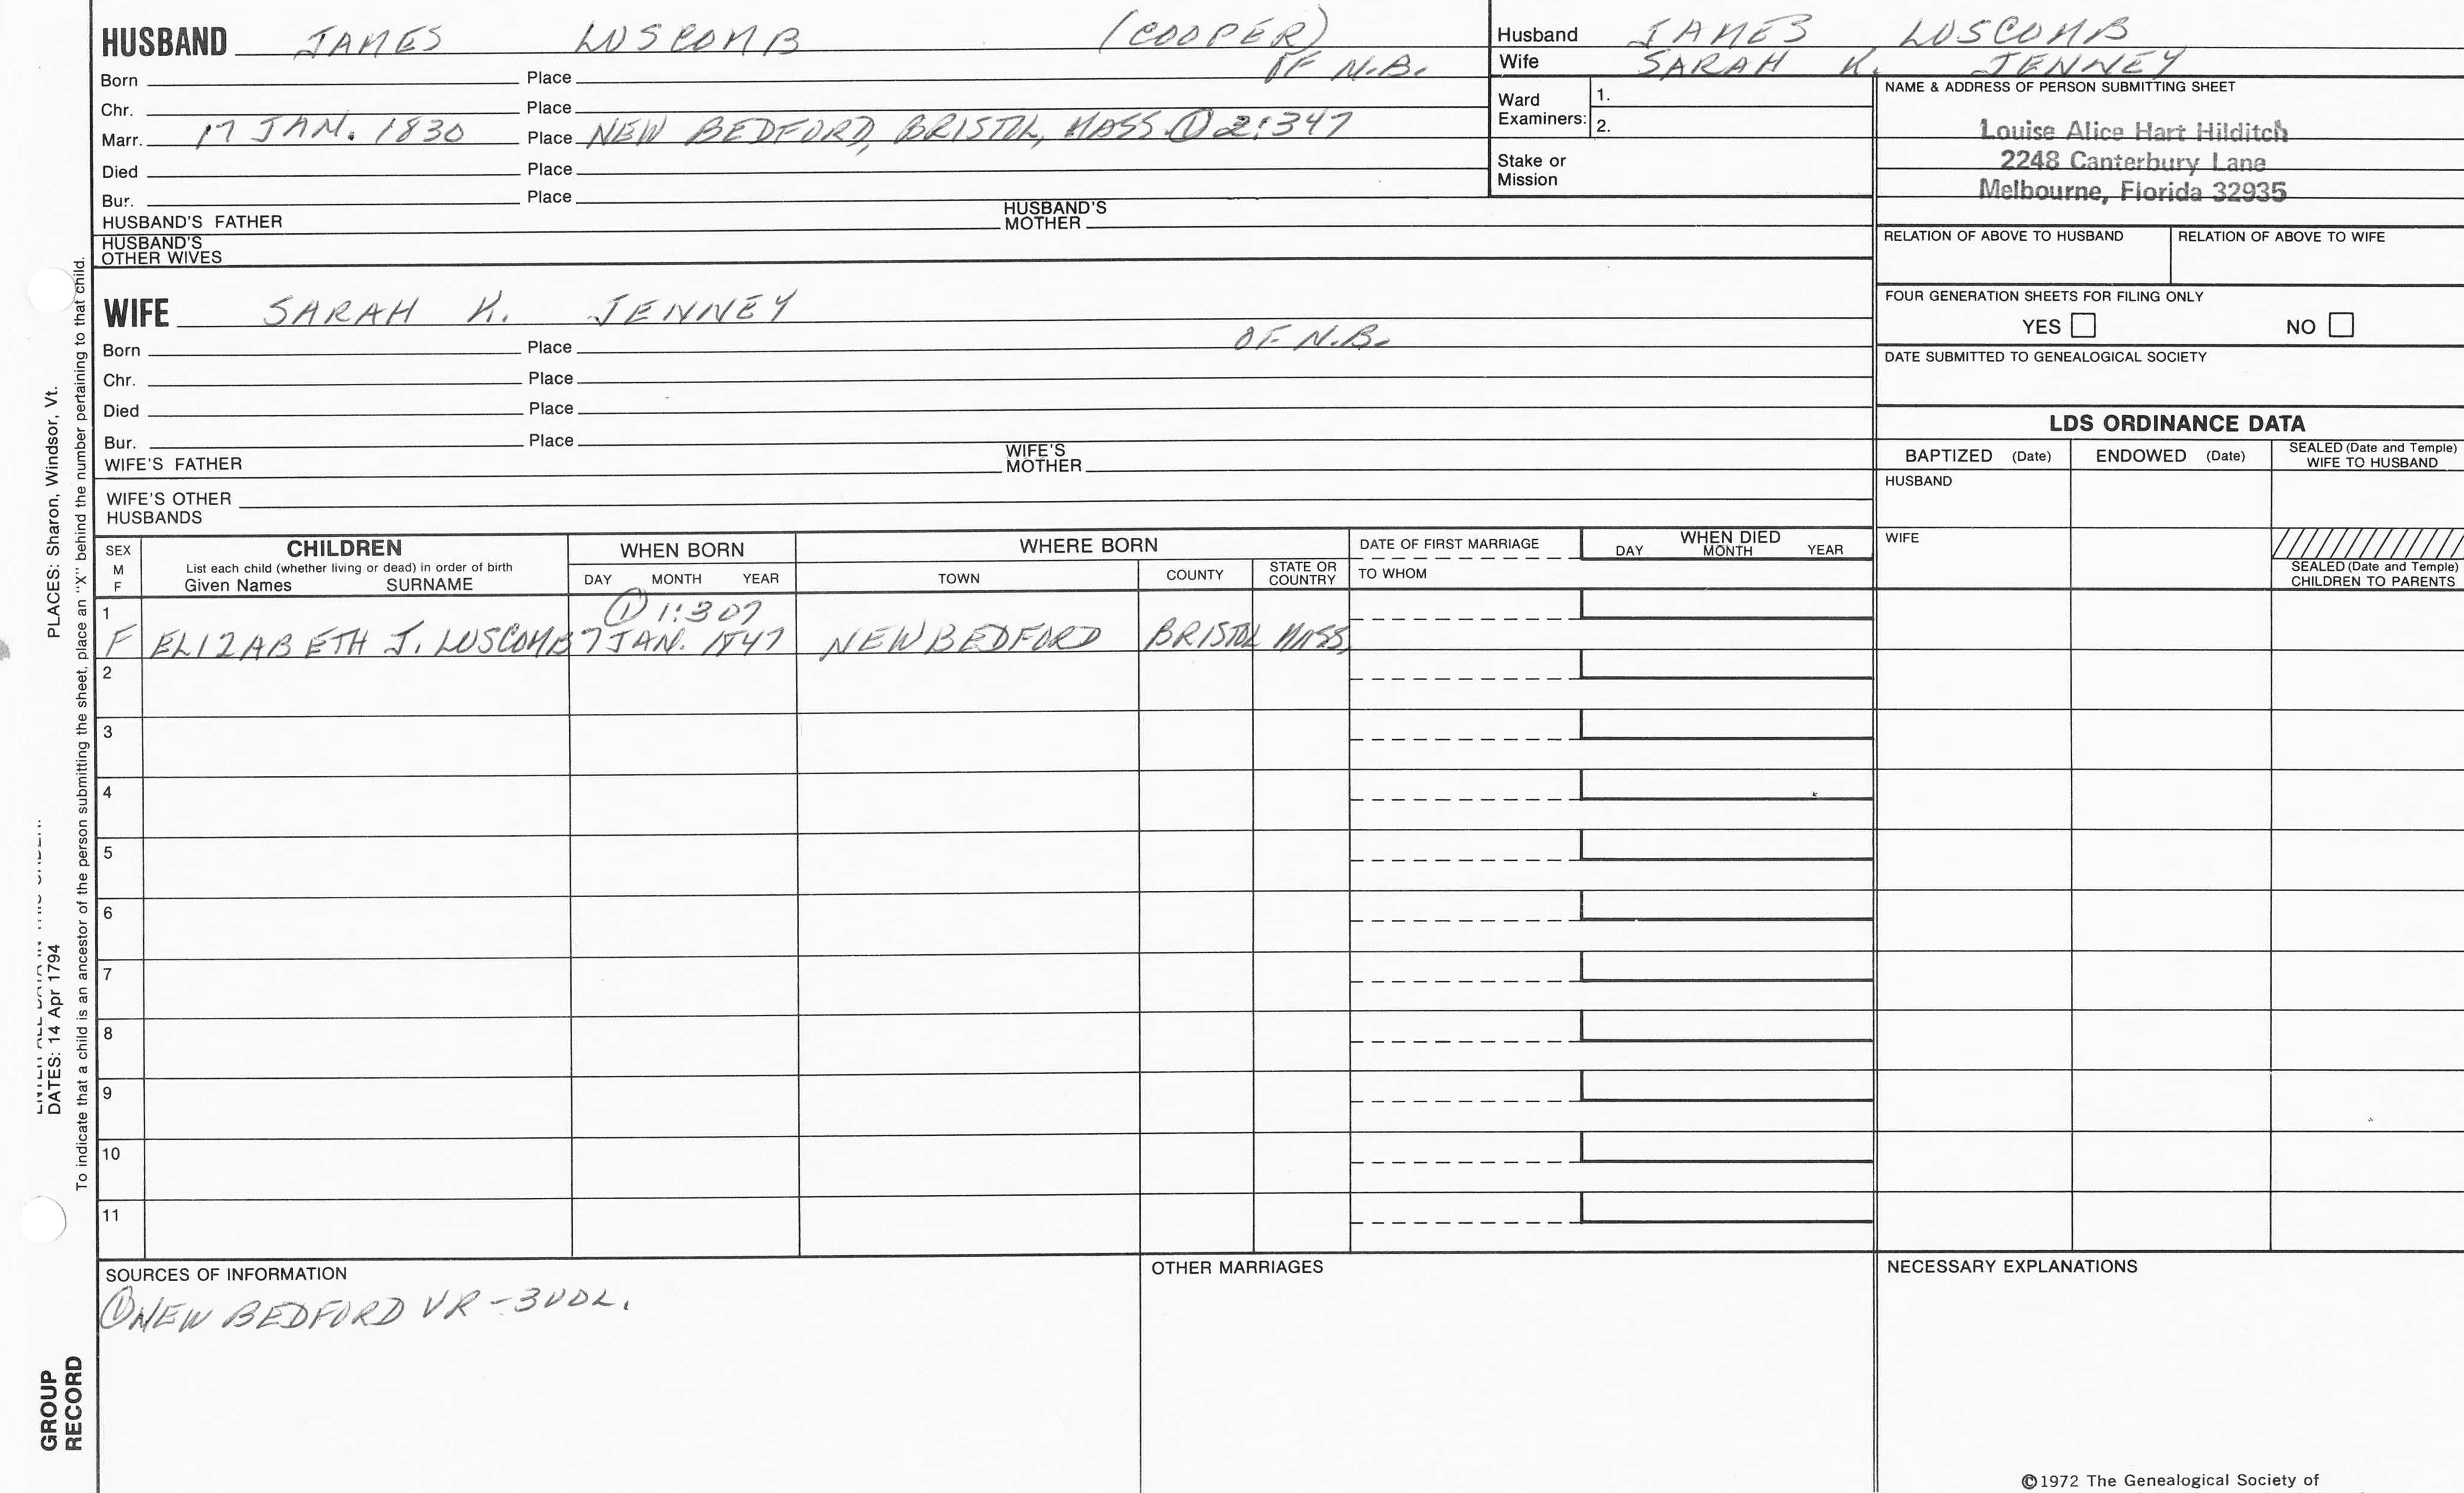 HUSBAND JAMES LUSCOMB (COOPER)
Born Place OF N.B.
Chr. Place
Marr. 17 JAN. 1830 Place NEW BEDFORD, BRISTOL, MASS. ① 2:347
Died Place
Bur. Place
HUSBAND'S FATHER HUSBAND'S MOTHER
HUSBAND'S OTHER WIVES
Husband JAMES LUSCOMB
Wife SARAH K. JENNEY
Ward Examiners: 1.
2.
Stake or Mission
NAME & ADDRESS OF PERSON SUBMITTING SHEET
Louise Alice Hart Hilditch
2248 Canterbury Lane
Melbourne, Florida 32935
RELATION OF ABOVE TO HUSBAND RELATION OF ABOVE TO WIFE
FOUR GENERATION SHEETS FOR FILING ONLY
YES NO
DATE SUBMITTED TO GENEALOGICAL SOCIETY
WIFE SARAH K. JENNEY
Born Place OF N.B.
Chr. Place
Died Place
Bur. Place
WIFE'S FATHER WIFE'S MOTHER
WIFE'S OTHER HUSBANDS
LDS ORDINANCE DATA
BAPTIZED (Date) ENDOWED (Date) SEALED (Date and Temple) WIFE TO HUSBAND
HUSBAND
WIFE
SEALED (Date and Temple) CHILDREN TO PARENTS
SEX M F
CHILDREN
List each child (whether living or dead) in order of birth
Given Names SURNAME
WHEN BORN
DAY MONTH YEAR
WHERE BORN
TOWN COUNTY STATE OR COUNTRY
DATE OF FIRST MARRIAGE
TO WHOM
WHEN DIED
DAY MONTH YEAR
1 ① 1:307
F ELIZABETH J. LUSCOMB 7 JAN. 1847 NEW BEDFORD BRISTOL MASS.
2
3
4
5
6
7
8
9
10
11
SOURCES OF INFORMATION
① NEW BEDFORD VR - 3VOL.
OTHER MARRIAGES
NECESSARY EXPLANATIONS
©1972 The Genealogical Society of
PLACES: Sharon, Windsor, Vt.
DATES: 14 Apr 1794
To indicate that a child is an ancestor of the person submitting the sheet, place an "X" behind the number pertaining to that child.
GROUP
RECORD